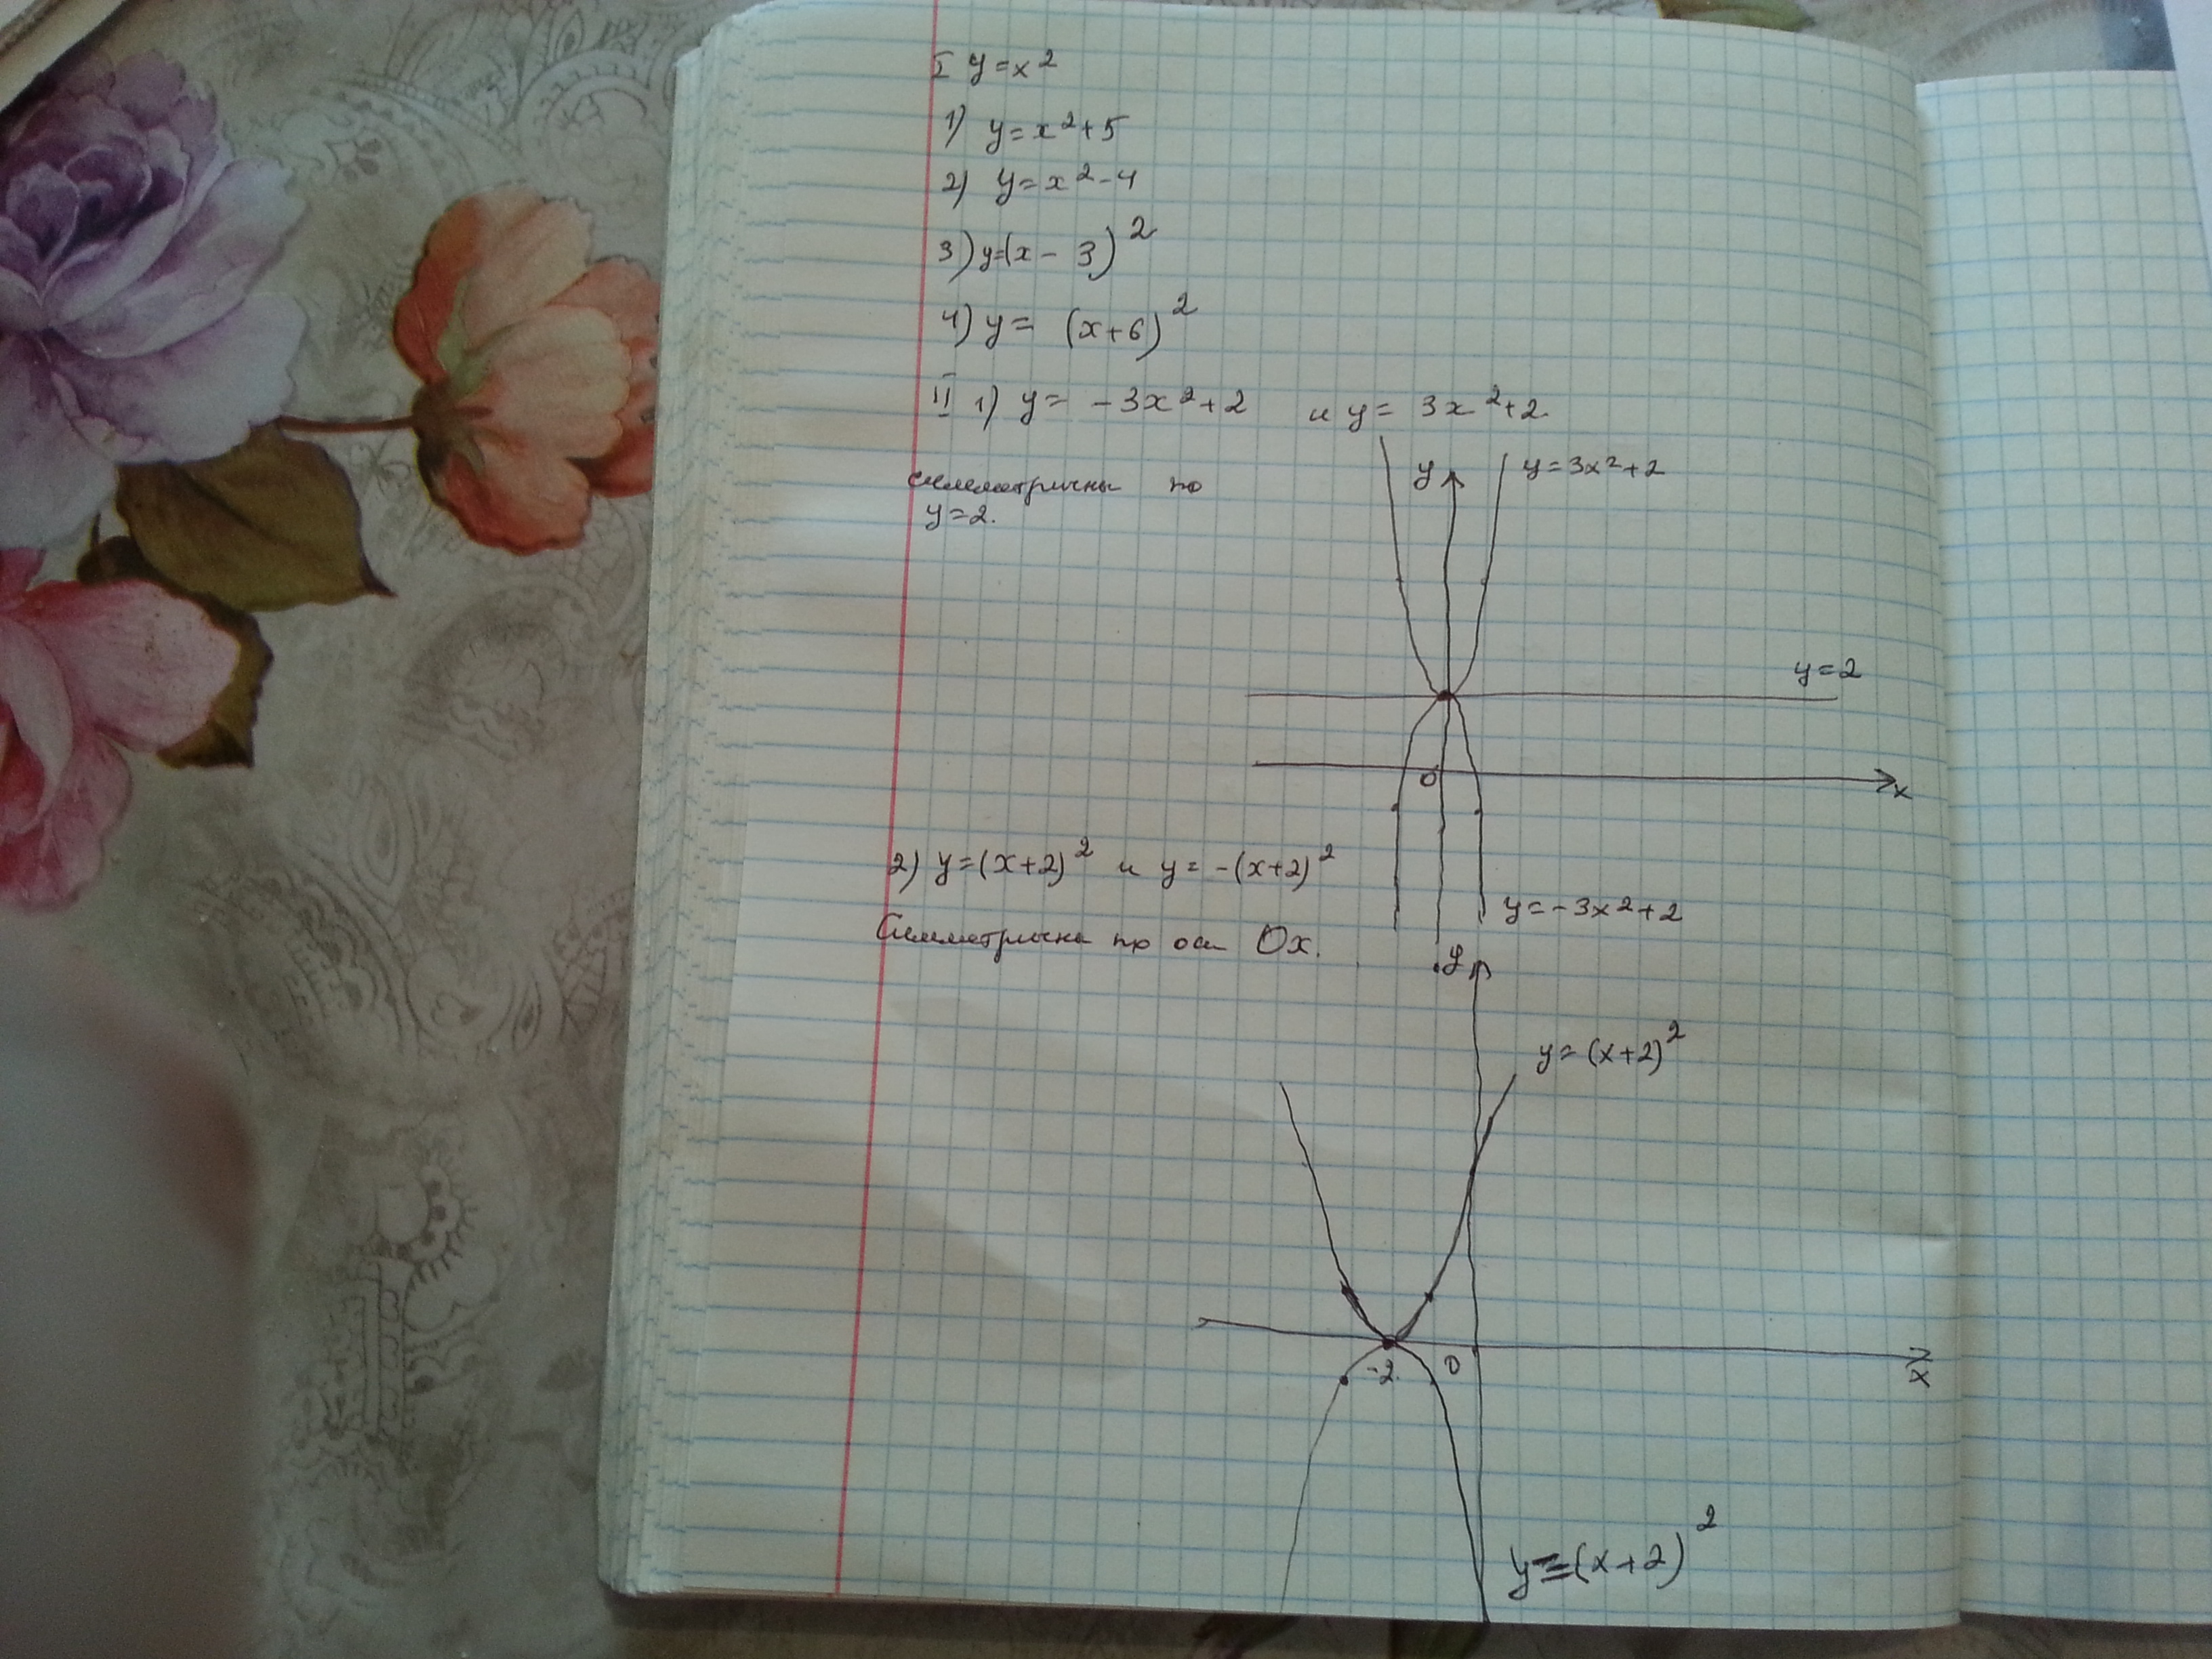 I y=x²
1) y=x²+5
2) y=x²-4
3) y=(x-3)²
4) y=(x+6)²
II 1) y= -3x²+2 и y= 3x²+2.
симметричны по
y=2.
y y=3x²+2
y=2
0
x
2) y=(x+2)² и y= -(x+2)²
y=-3x²+2
Симметричны по оси Ox.
y
y=(x+2)²
-2 0
x
y=-(x+2)²